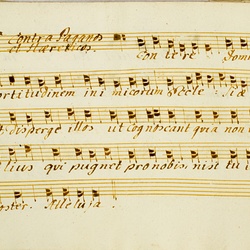 Contra Paganos
et Haereticos.
Con te re Domi
ortitudinem ini micorum Eccle siæ
t disperge illos ut Cognoscant quia non
lius qui pugnet pro nobis, nisi tu
oster. Alleluia